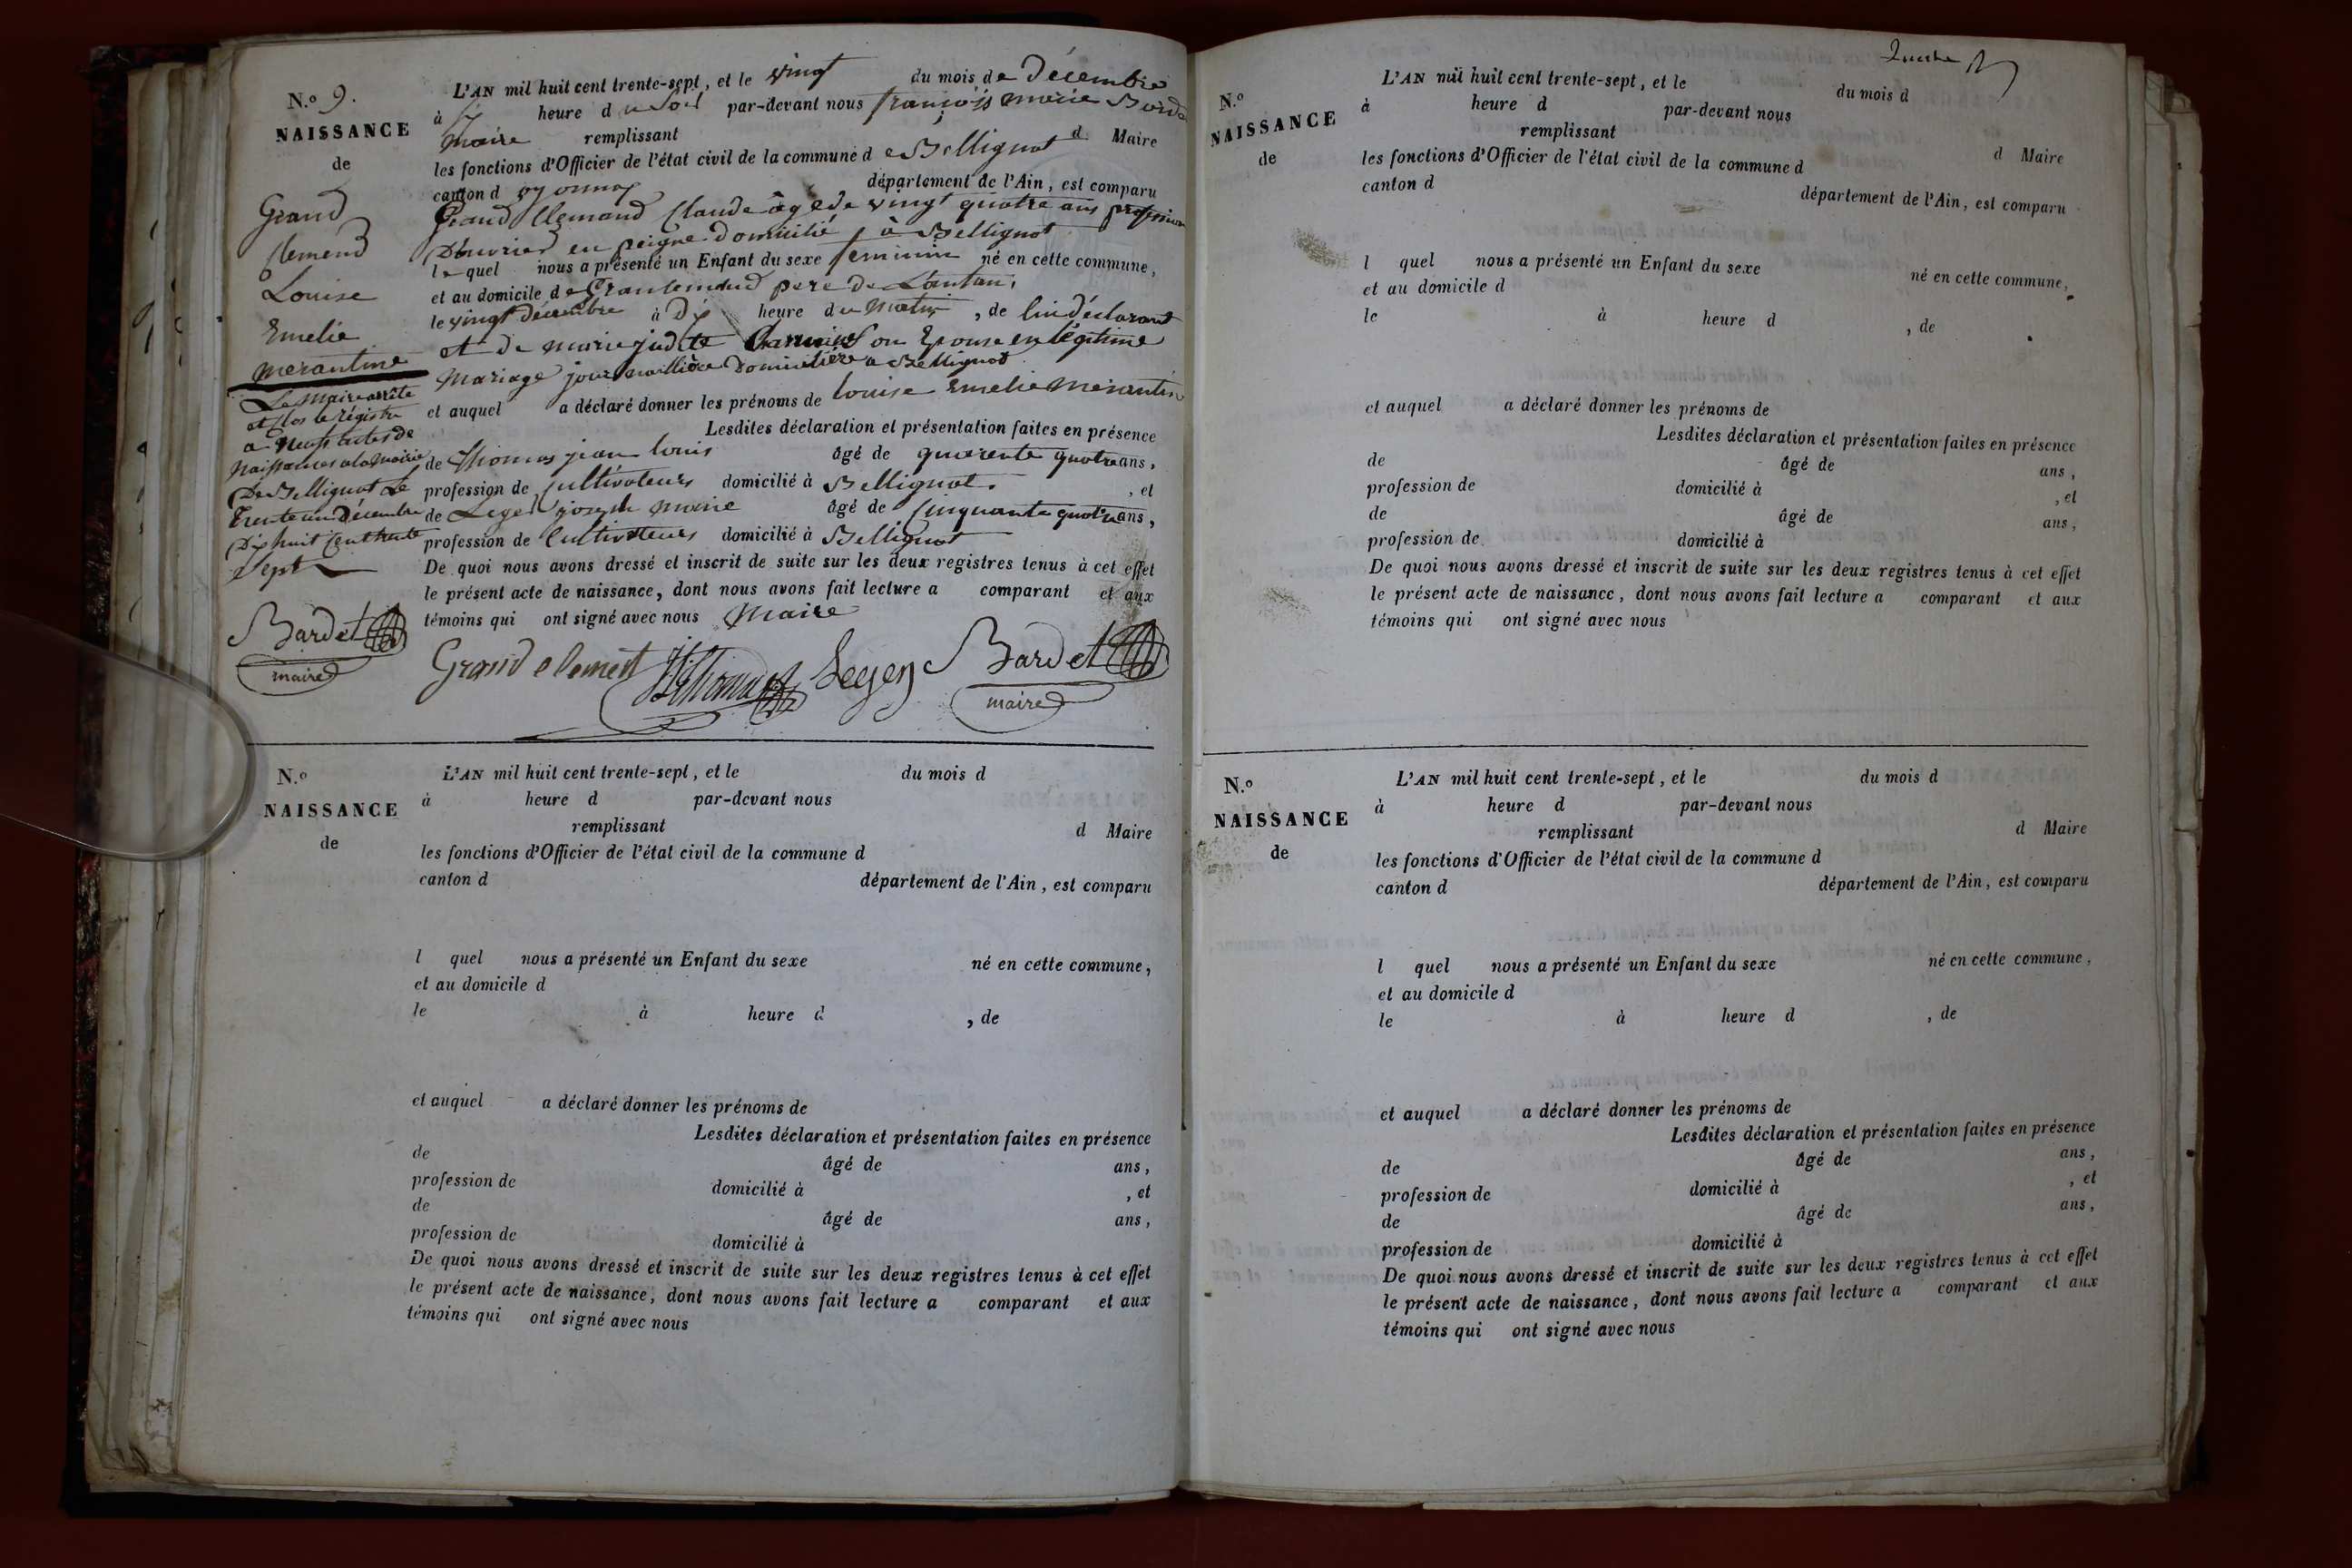 N.o 9.
NAISSANCE
de
Grand
Clemend
Louise
Emelie
merantine
Le Maire arrête
et Clos le régistre
a neuf actes de
Naissances a la Mairie
De Bellignat Le
trente un Décembre
Dix huit Cent trente
Sept
Bardet
maire
L'AN mil huit cent trente-sept, et le vingt du mois de Décembre
à six heure du Soir par-devant nous françois marie Borde
Maire remplissant d Maire
les fonctions d'Officier de l'état civil de la commune de Bellignat
canton d oyonnax département de l'Ain, est comparu
Grand Clemand Claude âgé de vingt quatre ans profession
D'ouvrier en peigne Domicilié à Bellignat
lequel nous a présenté un Enfant du sexe feminin né en cette commune,
et au domicile de Granclemend pere de L'anfan,
le vingt décembre à Dix heure du Matin, de lui déclarant
et de marie judite son Epouse en légitime
Mariage journallière Domicilière a Bellignat
et auquel a déclaré donner les prénoms de louise Emelie Merantine
Lesdites déclaration et présentation faites en présence
de Thomas jean louis âgé de quarente quatre ans,
profession de Cultivateurs domicilié à Bellignat, et
de Leger joseph marie âgé de Cinquante quatre ans,
profession de Cultivateurs domicilié à Bellignat
De quoi nous avons dressé et inscrit de suite sur les deux registres tenus à cet effet
le présent acte de naissance, dont nous avons fait lecture a comparant et aux
témoins qui ont signé avec nous Maire
Grand clement Thomas Leger Bardet
maire
N.o
NAISSANCE
de
L'AN mil huit cent trente-sept, et le du mois d
à heure d par-devant nous
remplissant d Maire
les fonctions d'Officier de l'état civil de la commune d
canton d département de l'Ain, est comparu
l quel nous a présenté un Enfant du sexe né en cette commune,
et au domicile d
le à heure d , de
et auquel a déclaré donner les prénoms de
Lesdites déclaration et présentation faites en présence
de âgé de ans,
profession de domicilié à , et
de âgé de ans,
profession de domicilié à
De quoi nous avons dressé et inscrit de suite sur les deux registres tenus à cet effet
le présent acte de naissance, dont nous avons fait lecture a comparant et aux
témoins qui ont signé avec nous
N.o
NAISSANCE
de
L'AN mil huit cent trente-sept, et le du mois d
à heure d par-devant nous
remplissant d Maire
les fonctions d'Officier de l'état civil de la commune d
canton d département de l'Ain, est comparu
l quel nous a présenté un Enfant du sexe né en cette commune,
et au domicile d
le à heure d , de
et auquel a déclaré donner les prénoms de
Lesdites déclaration et présentation faites en présence
de âgé de ans,
profession de domicilié à , et
de âgé de ans,
profession de domicilié à
De quoi nous avons dressé et inscrit de suite sur les deux registres tenus à cet effet
le présent acte de naissance, dont nous avons fait lecture a comparant et aux
témoins qui ont signé avec nous
N.o
NAISSANCE
de
L'AN mil huit cent trente-sept, et le du mois d
à heure d par-devant nous
remplissant d Maire
les fonctions d'Officier de l'état civil de la commune d
canton d département de l'Ain, est comparu
l quel nous a présenté un Enfant du sexe né en cette commune,
et au domicile d
le à heure d , de
et auquel a déclaré donner les prénoms de
Lesdites déclaration et présentation faites en présence
de âgé de ans,
profession de domicilié à , et
de âgé de ans,
profession de domicilié à
De quoi nous avons dressé et inscrit de suite sur les deux registres tenus à cet effet
le présent acte de naissance, dont nous avons fait lecture a comparant et aux
témoins qui ont signé avec nous